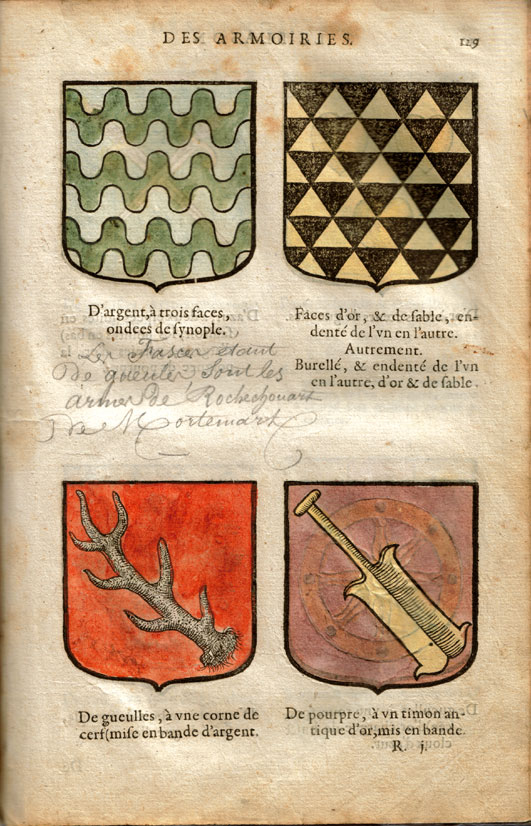 DES ARMOIRIES. 129
D'argent, à trois faces,
ondees de synople.
Faces d'or, & de sable, en-
denté de l'vn en l'autre.
Autrement.
Burellé, & endenté de l'vn
en l'autre, d'or & de sable.
Les Fasces étant
De gueules, sont les
armes De Rochechouart
De Mortemart
De gueulles, à vne corne de
cerf (mise en bande d'argent.
De pourpre, à vn timon an-
tique d'or, mis en bande.
R. j.